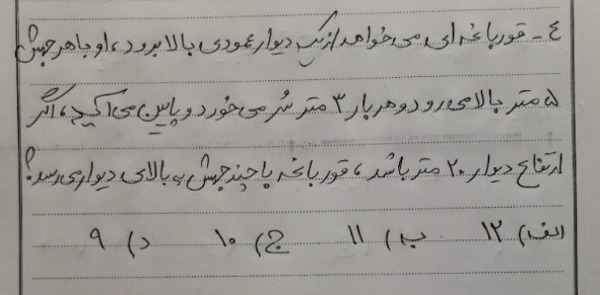 ٤ - قورباغه ای می خواهد از یک دیوار عمودی بالا برود، او با هر جهش
۵ متر بالا می رود و هر بار ۳ متر سُر می خورد و پایین می آید، اگر
ارتفاع دیوار ۲۰ متر باشد، قورباغه با چند جهش به بالای دیوار می رسد؟
الف) ۱۲ ب) ۱۱ ج) ۱۰ د) ۹